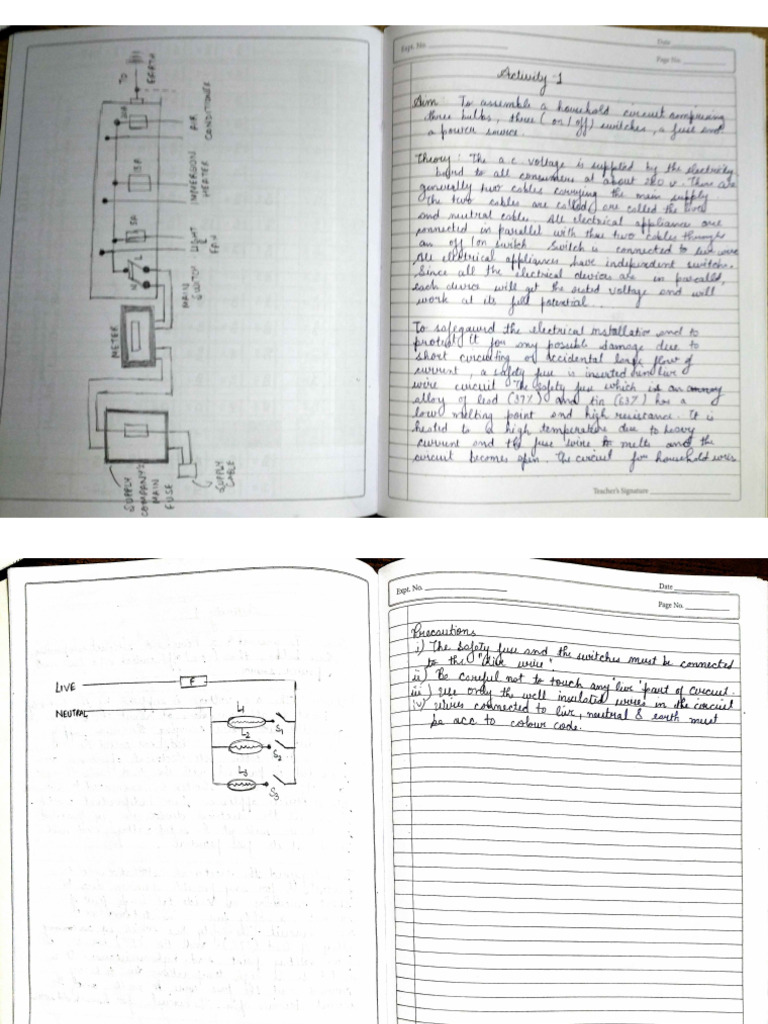 TO
EARTH
10A
AIR
CONDITIONER
15A
IMMERSION
HEATER
5A
LIGHT
&
FAN
N
L
MAIN
SWITCH
METER
SUPPLY
COMPANY'S
MAIN
FUSE
SUPPLY
CABLE
Expt. No.
Date
Page No.
Activity-1
Aim To assemble a household circuit comprising
three bulbs, three (on/off) switches, a fuse and
a power source.
Theory: The a.c voltage is supplied by the electricity
board to all consumers at about 220 v. There are
generally two cables carrying the main supply.
The two cables are called are called the live
and neutral cable. All electrical appliances are
connected in parallel with thse two cables through
an off/on switch. Switch is connected to live wire
All electrical appliances have independent switches.
Since all the electrical devices are in parallel,
each device will get the rated voltage and will
work at its full potential.
To safegaurd the electrical installation and to
protect it for any posible damage due to
short circuiting or accidental large flow of
current, a safety fuse is inserted in live
wire circuit The safety fuse which is an
alloy of lead (37%) and tin (63%) has a
low melting point and high resistance. It is
heated to a high temperature due to heavy
current and the fuse wire to melts and the
circuit becomes open. The circuit for household wires
Teacher's Signature
LIVE
F
NEUTRAL
L1
S1
L2
S2
L3
S3
Expt. No.
Date
Page No.
Precautions
i) The safety fuse and the switches must be connected
to the "live wire".
ii) Be careful not to touch any 'live' part of circuit.
iii) Use only the well insulated wires in the circuit
iv) Wires connected to live, neutral & earth must
be acc to colour code.